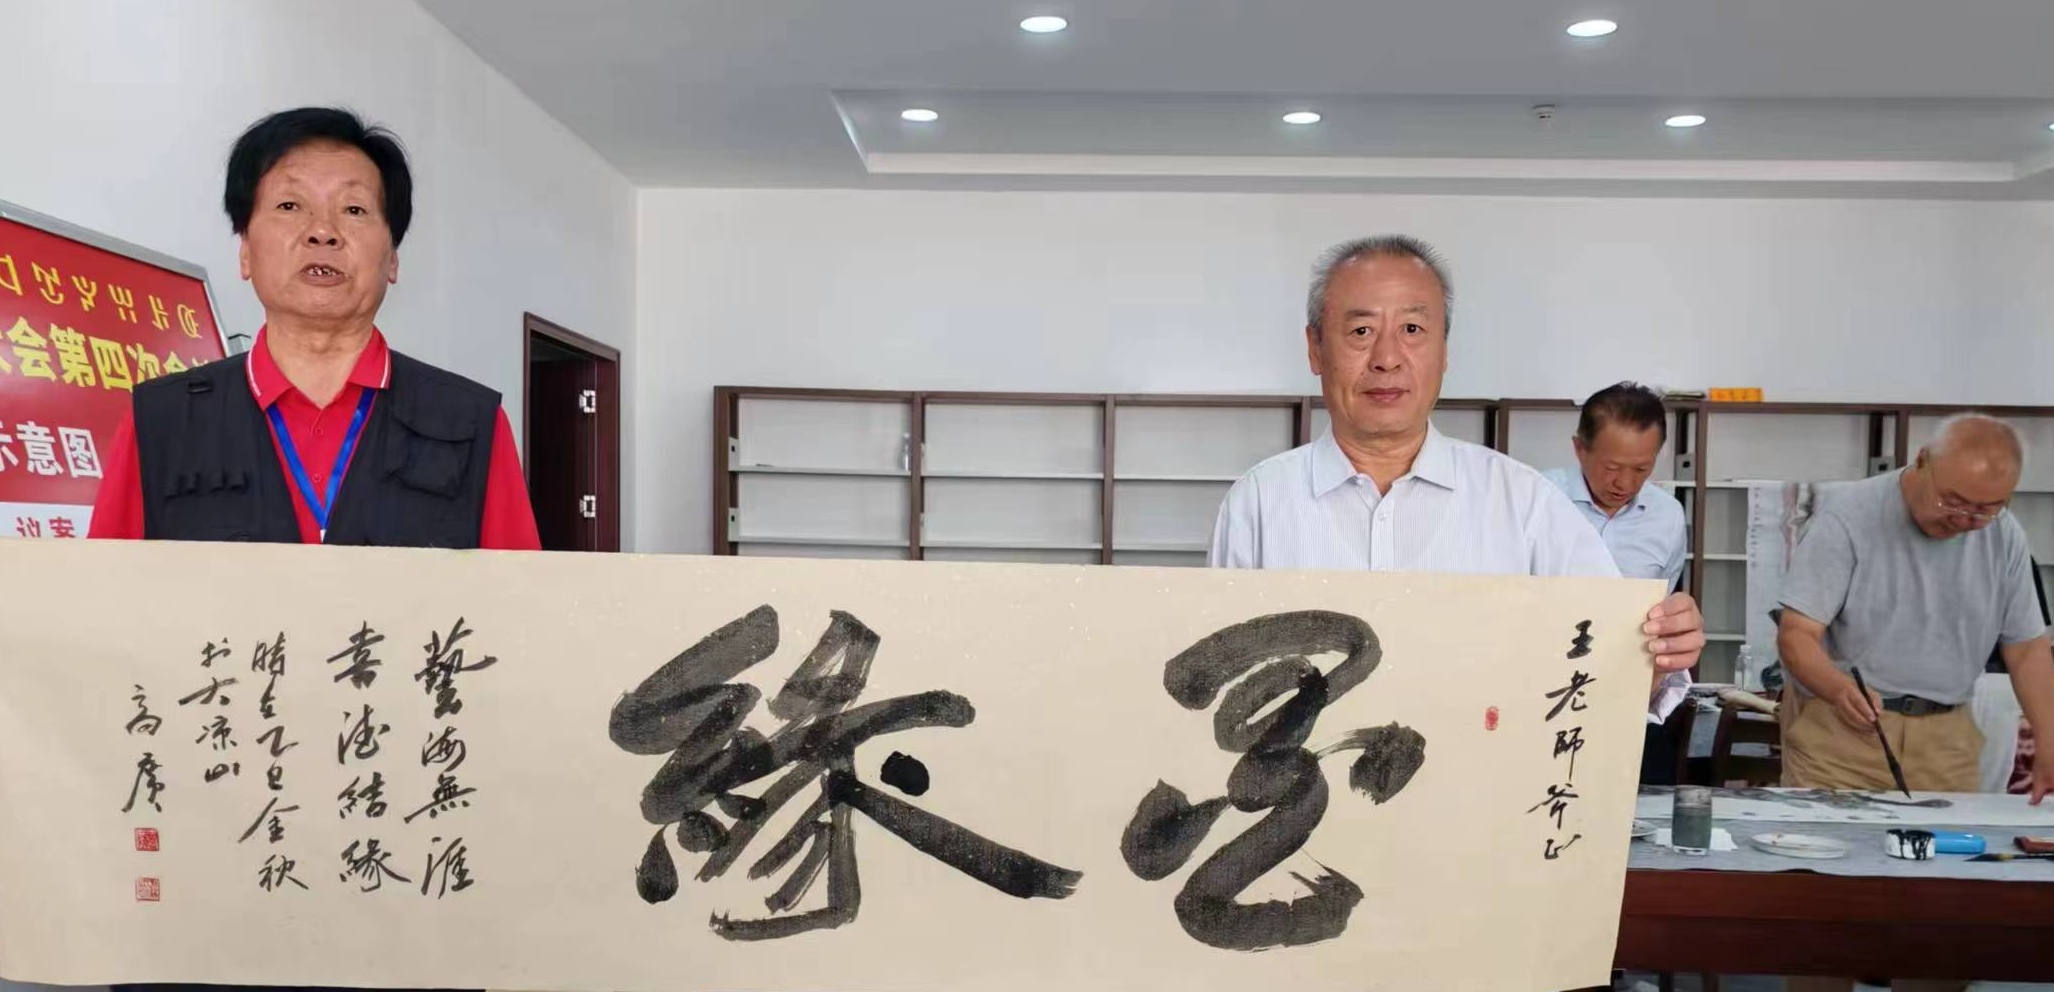 会第四次会
示意图
议案
王老師斧正
墨緣
藝海無涯
喜德結緣
時在乙巳金秋
於大涼山
高廣